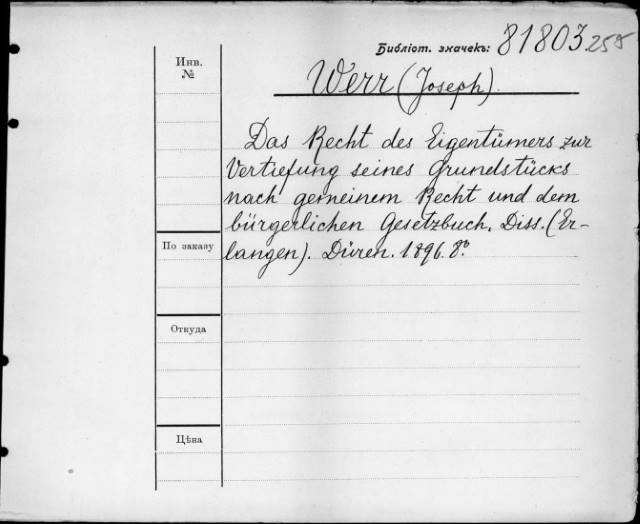 Библіот. значекъ: 81803 255
Инв.
№
Werr (Joseph).
Das Recht des Eigentümers zur
Vertiefung seines Grundstücks
nach gemeinem Recht und dem
bürgerlichen Gesetzbuch. Diss. (Er-
По заказу
langen). Düren. 1896. 8º
Откуда
Цѣна